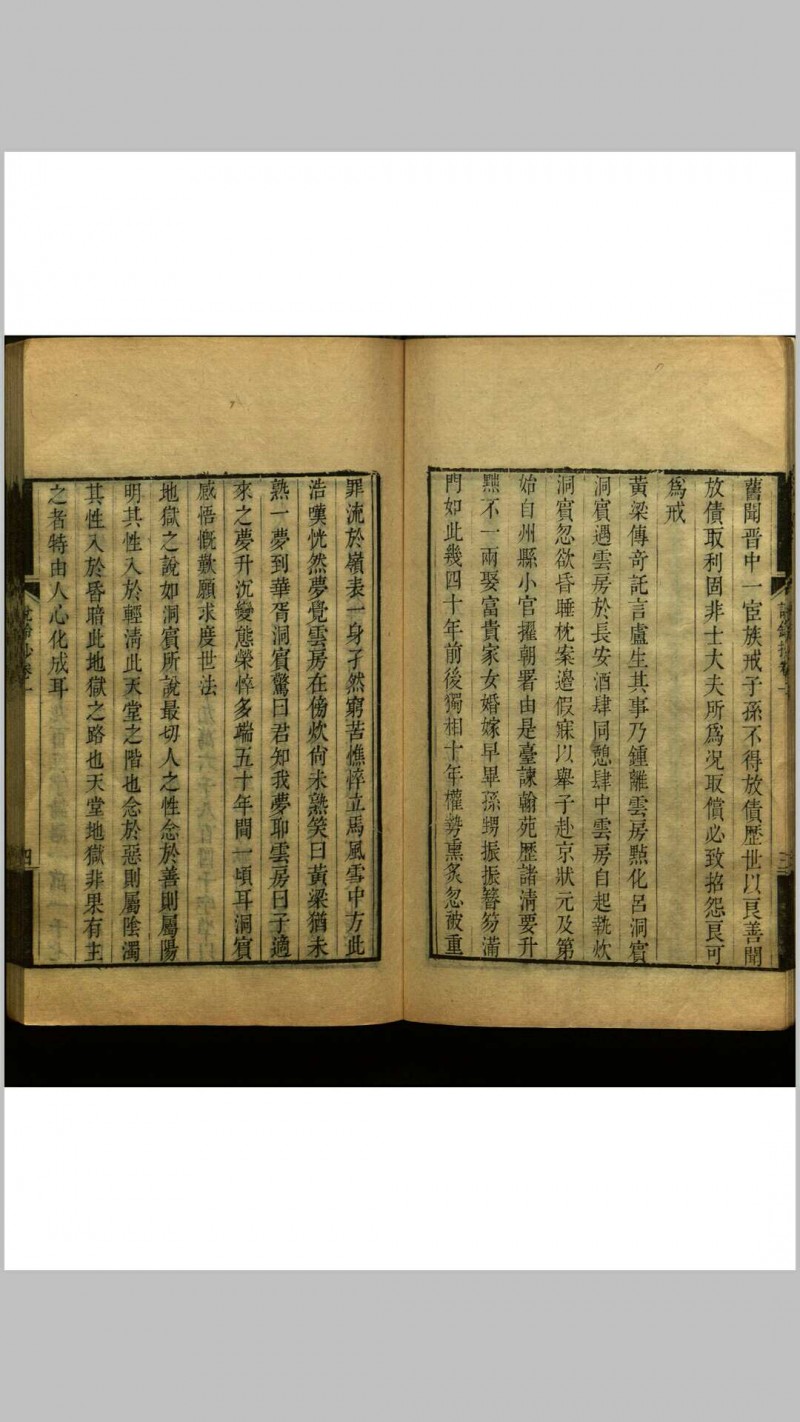 舊聞晋中一宦族戒子孫不得放債歷世以良善聞
放債取利固非士大夫所爲况取償必致招怨良可
爲戒
黃梁傳奇託言盧生其事乃鍾離雲房㸃化呂洞賓
洞賓遇雲房於長安酒肆同憩肆中雲房自起執炊
洞賓忽欲昏睡枕案邉假寐以舉子赴京狀元及第
始自州縣小官擢朝署由是臺諫翰苑歷諸淸要升
黜不一兩娶富貴家女婚嫁早畢孫甥振振簪笏滿
門如此幾四十年前後獨相十年權勢熏炙忽被重
三
罪流於嶺表一身孑然窮苦憔悴立馬風雪中方此
浩嘆恍然夢覺雲房在傍炊尙未熟笑曰黃梁猶未
熟一夢到華胥洞賓驚曰君知我夢耶雲房曰子適
來之夢升沉變態榮悴多端五十年間一頃耳洞賓
感悟慨歎願求度世法
地獄之說如洞賓所說最切人之性念於善則屬陽
明其性入於輕淸此天堂之階也念於惡則屬陰濁
其性入於昏暗此地獄之路也天堂地獄非果有主
之者特由人心化成耳
四